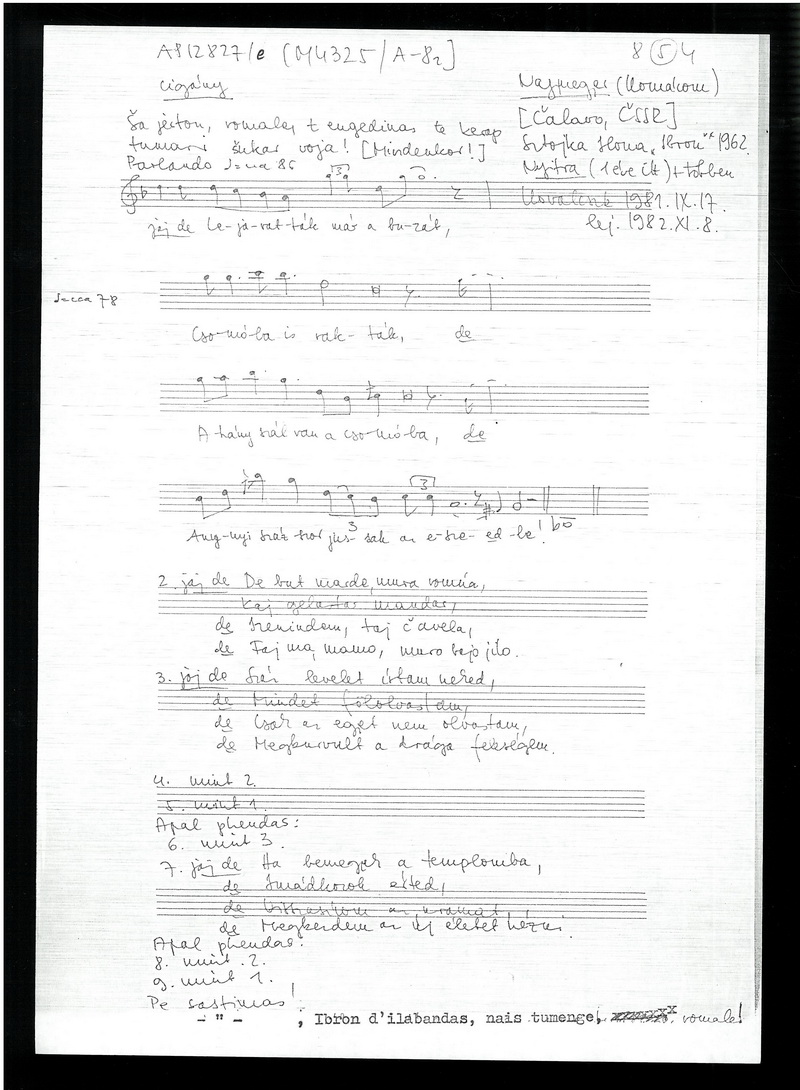 A812827/e [M4325/A-82] 8 (5) 4
cigány
Nagymegyer (Komárom)
[Čalovo, ČSSR]
Šaješton, romale, t engedinas te kerap
tumari šukar voja! [Mindenkor!]
Sztojka Ilona "Ibron" 1962.
Parlando ♩=cca 86
Nyitra (1 éve itt) + többen
Kovalcsik 1981. IX. 17.
lej. 1982. XI. 8.
jáj de Le-ja-rat-ták már a bu-zát,
♩=cca 78
Cso-mó-ba is rak-ták, de
A-hány szál van a cso-mó-ba, de
Any-nyi száz-szor jus-sak az e-sze-ed-be!
2. jáj de De but marde, mura romńa,
Kaj gelastar mandar,
de Szenindem, taj čavela,
de Faj ma, mamo, muro bajo jilo.
3. jáj de Száz levelet írtam néked,
de Mindet fölolvastam,
de Csak az egyet nem olvastam,
de Megburult a drága feleségem.
4. mint 2.
5. mint 1.
Apal phendas:
6. mint 3.
7. jáj de Ha bemegyek a templomba,
de Imádkozok érted,
de
de Megkérdem az új életet kézni.
Apal phendas:
8. mint 2.
9. mint 1.
Pe sastimas!
- " - , Ibron d'ilabandas, nais tumenge, romale!